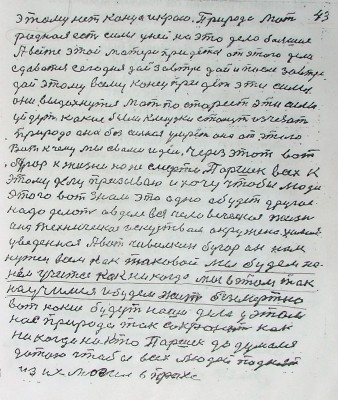 43
этому нет конца и краю. Природа мат
родная есть силы у ней на это дело большие
А дети этой матери придется от этого дела
сдаватся сегодня дай завтра дай и после завтра
дай этому всему конец придет эти силы
они выдохнутся мат постареет эти силы
уйдут какие были клецки станут изчезать
природа она без силная умрет она от этого
Вот к чему мы с вами идем. Через этот вот
бугор к жизни но не смерти Паршек всех к
этому делу призываю и хочу чтобы люди
этого вот знали это одно а будет другое
надо делать а в деле вся человеческая жизн
она техническая искуственая
введенная А вот чивилкин бугор он нам
нужен всем как таковой мы будем на
нем учится как никогда мы в этом так
научимся и будем жить безсмертно
вот какие будут наши дела у этом
нас природа так сохранит как
никогда никто Паршек додумался
до того чтобы всех людей поднят
из их могил в прахе